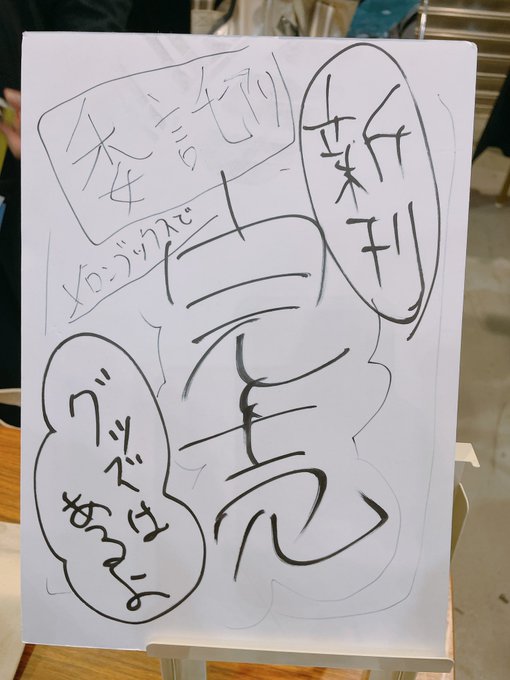 新刊
完売
委託アリ
メロンブックスで
グッズは
あるよ